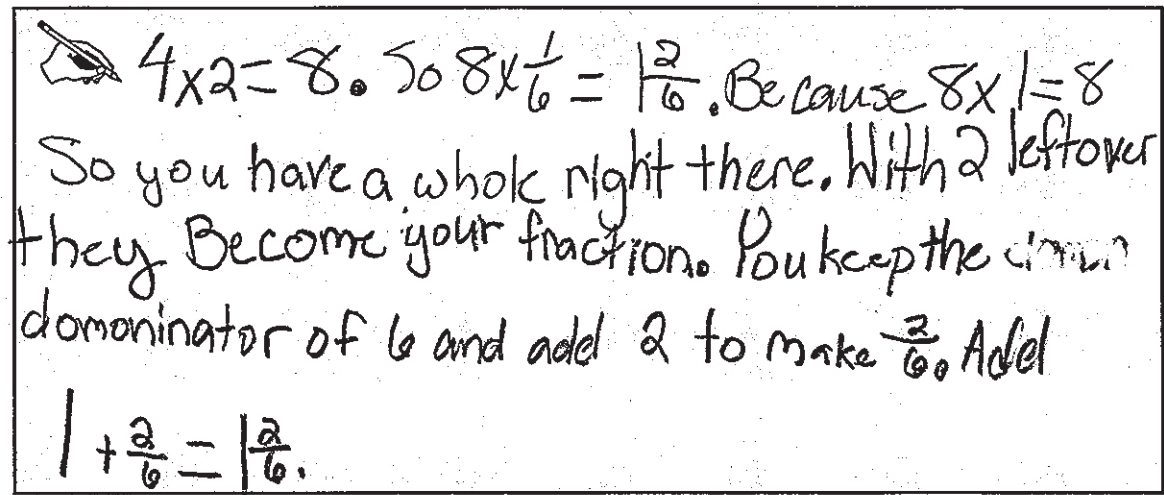 4x2=8. So 8x1/6 = 1 2/6. Because 8x1=8
So you have a whole right there. With 2 leftover
they Become your fraction. You keep the
domoninator of 6 and add 2 to make 2/6. Add
1 + 2/6 = 1 2/6.